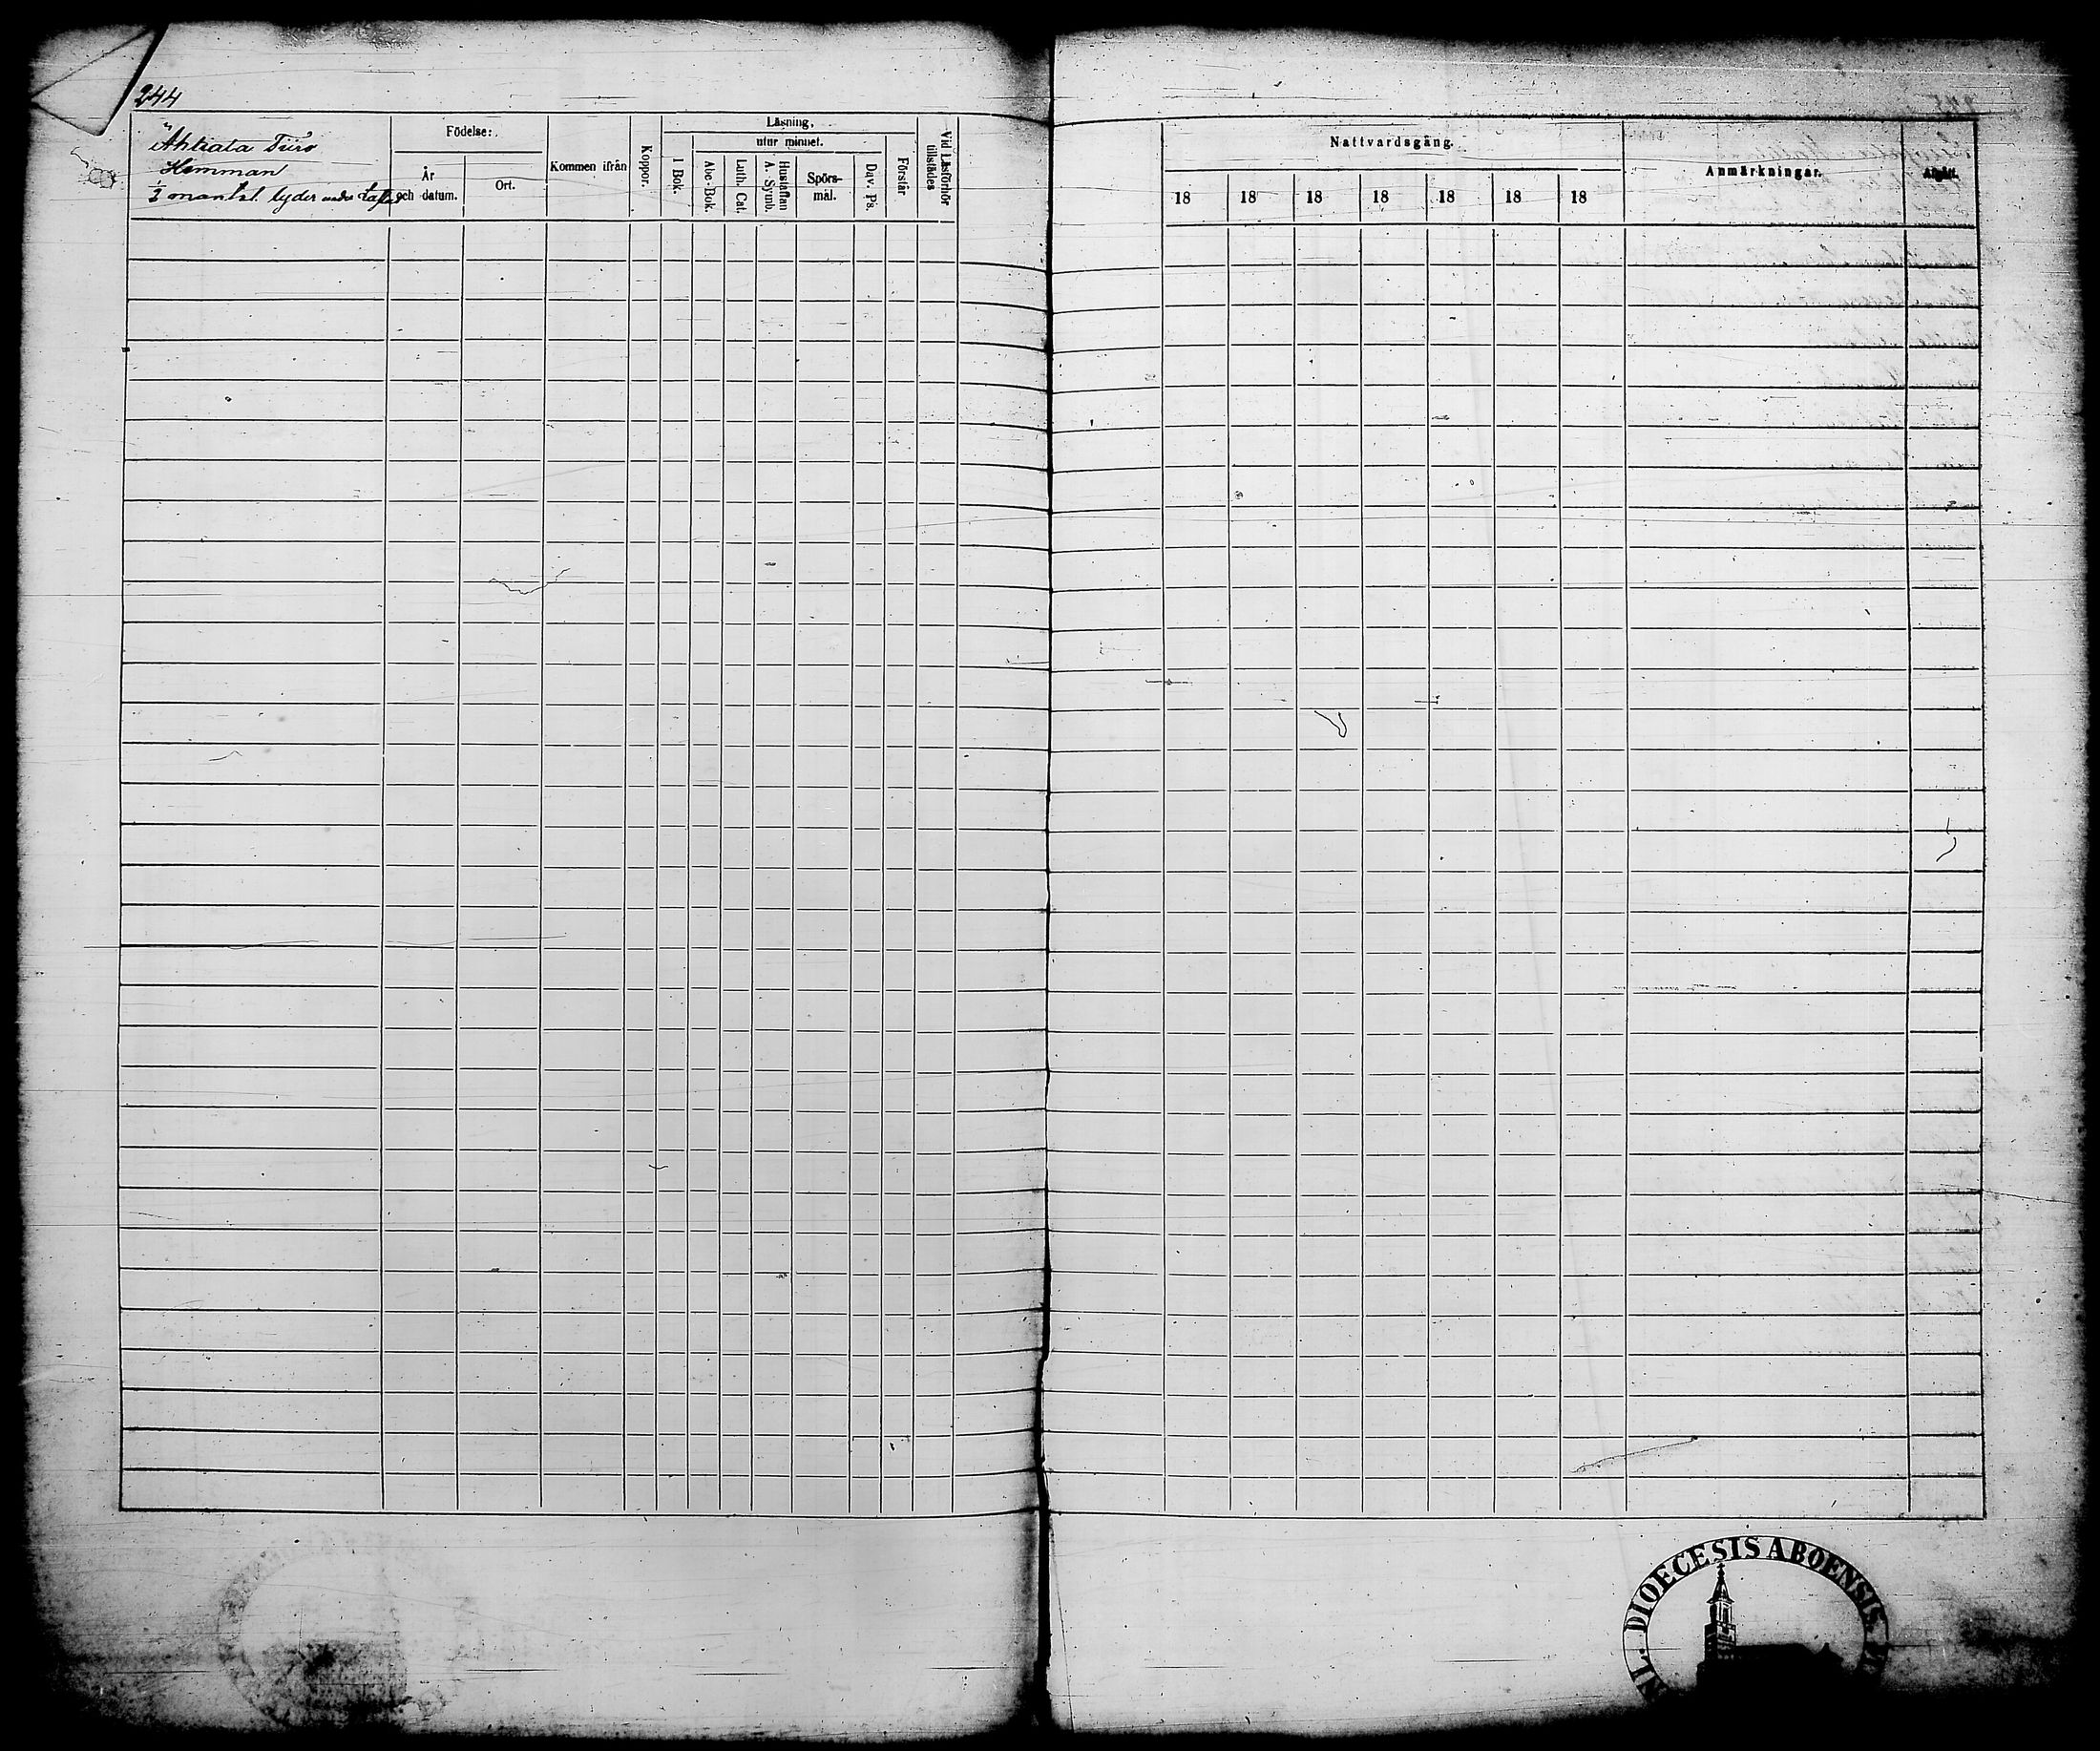 244
Hemman
½ mantal lyder under
Födelse:
År och datum.
Ort.
Kommen ifrån
Koppor.
Läsning,
I Bok.
utur minnet.
Abc-Bok.
Luth. Cat.
Hustaflan A. Symb.
Spörs-mål.
Dav. Ps.
Förstår
Vid Läsförhör tillstädes
Nattvardsgång.
18 18 18 18 18 18 18
Anmärkningar.
Afgått.
DIOECESIS ABOENSIS